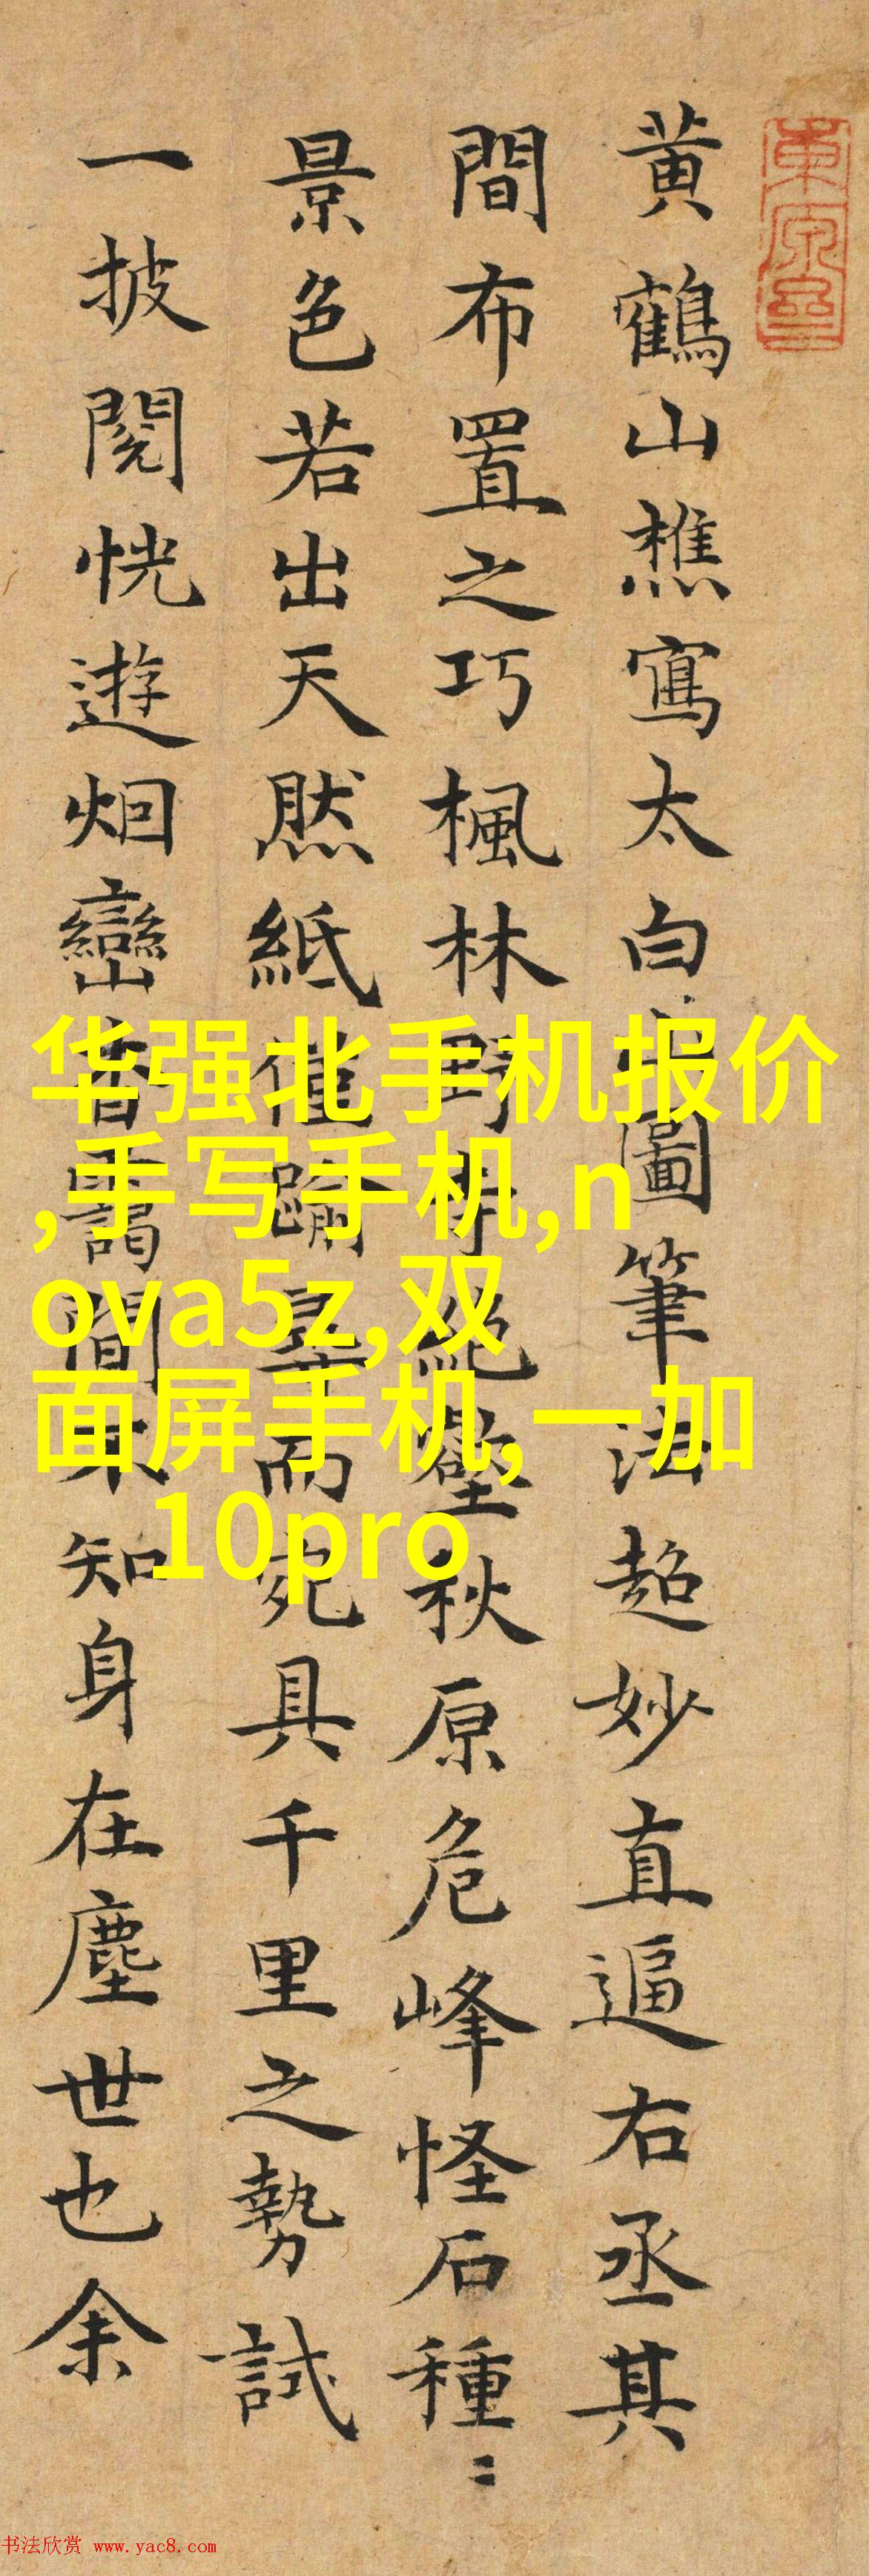 東原
黄鶴山樵寫太白山圖筆法超妙直逼右丞其
間布置之巧楓林野寺絶壑秋原危峰怪石種〻
景色若出天然紙僅踰而宛具千里之勢試
一披閱恍遊烟巒杳靄間不知身在塵世也余
华强北手机报价
,手写手机,n
ova5z,双
面屏手机,一加
10pro
书法欣赏 www.yac8.com